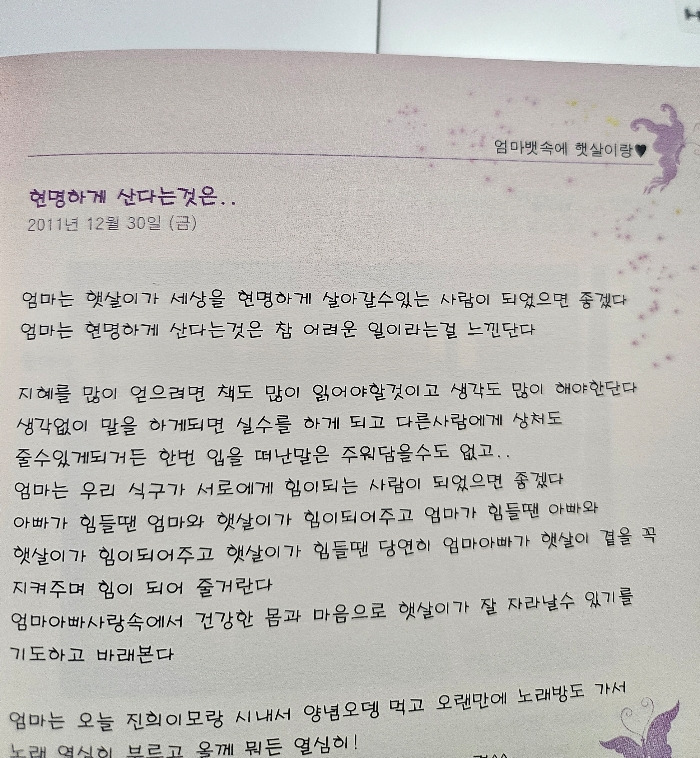 엄마뱃속에 햇살이랑♥
현명하게 산다는것은..
2011년 12월 30일 (금)
엄마는 햇살이가 세상을 현명하게 살아갈수있는 사람이 되었으면 좋겠다
엄마는 현명하게 산다는것은 참 어려운 일이라는걸 느낀단다
지혜를 많이 얻으려면 책도 많이 읽어야할것이고 생각도 많이 해야한단다
생각없이 말을 하게되면 실수를 하게 되고 다른사람에게 상처도
줄수있게되거든 한번 입을 떠난말은 주워담을수도 없고..
엄마는 우리 식구가 서로에게 힘이되는 사람이 되었으면 좋겠다
아빠가 힘들땐 엄마와 햇살이가 힘이되어주고 엄마가 힘들땐 아빠와
햇살이가 힘이되어주고 햇살이가 힘들땐 당연히 엄마아빠가 햇살이 곁을 꼭
지켜주며 힘이 되어 줄거란다
엄마아빠사랑속에서 건강한 몸과 마음으로 햇살이가 잘 자라날수 있기를
기도하고 바래본다
엄마는 오늘 진희이모랑 시내서 양념오뎅 먹고 오랜만에 노래방도 가서
노래 열심히 부르고 올께 뭐든 열심히!